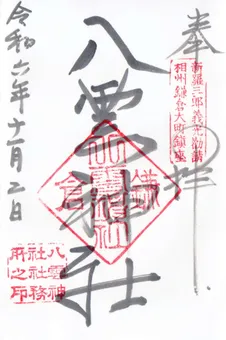 奉拝
新羅三郎義光勧請
相州鎌倉大町鎮座
八雲神社
鎌倉
八雲神社
八雲神
社社務
所之印
令和六年十一月二日